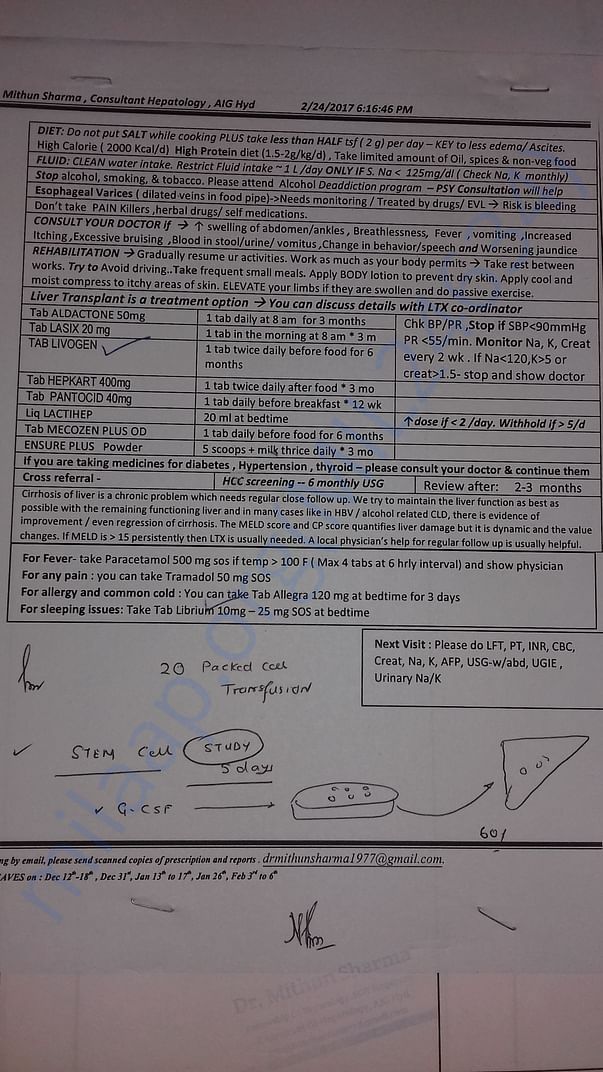 Mithun Sharma , Consultant Hepatology , AIG Hyd 2/24/2017 6:16:46 PM
DIET: Do not put SALT while cooking PLUS take less than HALF tsf ( 2 g) per day – KEY to less edema/ Ascites.
High Calorie ( 2000 Kcal/d) High Protein diet (1.5-2g/kg/d) , Take limited amount of Oil, spices & non-veg food
FLUID: CLEAN water intake. Restrict Fluid intake ~ 1 L /day ONLY IF S. Na < 125mg/dl ( Check Na, K monthly)
Stop alcohol, smoking, & tobacco. Please attend Alcohol Deaddiction program – PSY Consultation will help
Esophageal Varices ( dilated veins in food pipe)->Needs monitoring / Treated by drugs/ EVL → Risk is bleeding
Don't take PAIN Killers ,herbal drugs/ self medications.
CONSULT YOUR DOCTOR if → ↑ swelling of abdomen/ankles , Breathlessness, Fever , vomiting ,Increased
Itching ,Excessive bruising ,Blood in stool/urine/ vomitus ,Change in behavior/speech and Worsening jaundice
REHABILITATION → Gradually resume ur activities. Work as much as your body permits → Take rest between
works. Try to Avoid driving..Take frequent small meals. Apply BODY lotion to prevent dry skin. Apply cool and
moist compress to itchy areas of skin. ELEVATE your limbs if they are swollen and do passive exercise.
Liver Transplant is a treatment option → You can discuss details with LTX co-ordinator
Tab ALDACTONE 50mg 1 tab daily at 8 am for 3 months Chk BP/PR ,Stop if SBP<90mmHg
Tab LASIX 20 mg 1 tab in the morning at 8 am * 3 m PR <55/min. Monitor Na, K, Creat
TAB LIVOGEN 1 tab twice daily before food for 6 every 2 wk . If Na<120,K>5 or
months creat>1.5- stop and show doctor
Tab HEPKART 400mg 1 tab twice daily after food * 3 mo
Tab PANTOCID 40mg 1 tab daily before breakfast * 12 wk
Liq LACTIHEP 20 ml at bedtime ↑dose if < 2 /day. Withhold if > 5/d
Tab MECOZEN PLUS OD 1 tab daily before food for 6 months
ENSURE PLUS Powder 5 scoops + milk thrice daily * 3 mo
If you are taking medicines for diabetes , Hypertension , thyroid – please consult your doctor & continue them
Cross referral - HCC screening -- 6 monthly USG Review after: 2-3 months
Cirrhosis of liver is a chronic problem which needs regular close follow up. We try to maintain the liver function as best as
possible with the remaining functioning liver and in many cases like in HBV / alcohol related CLD, there is evidence of
improvement / even regression of cirrhosis. The MELD score and CP score quantifies liver damage but it is dynamic and the value
changes. If MELD is > 15 persistently then LTX is usually needed. A local physician's help for regular follow up is usually helpful.
For Fever- take Paracetamol 500 mg sos if temp > 100 F ( Max 4 tabs at 6 hrly interval) and show physician
For any pain : you can take Tramadol 50 mg SOS
For allergy and common cold : You can take Tab Allegra 120 mg at bedtime for 3 days
For sleeping issues: Take Tab Librium 10mg – 25 mg SOS at bedtime
Next Visit : Please do LFT, PT, INR, CBC,
Creat, Na, K, AFP, USG-w/abd, UGIE ,
Urinary Na/K
20 Packed Cell
Transfusion
STEM Cell STUDY
5 days
G-CSF
60/
ng by email, please send scanned copies of prescription and reports . drmithunsharma1977@gmail.com.
AVES on : Dec 12th-18th , Dec 31st, Jan 13th to 17th, Jan 26th, Feb 3rd to 6th
Dr. Mithun Sharma